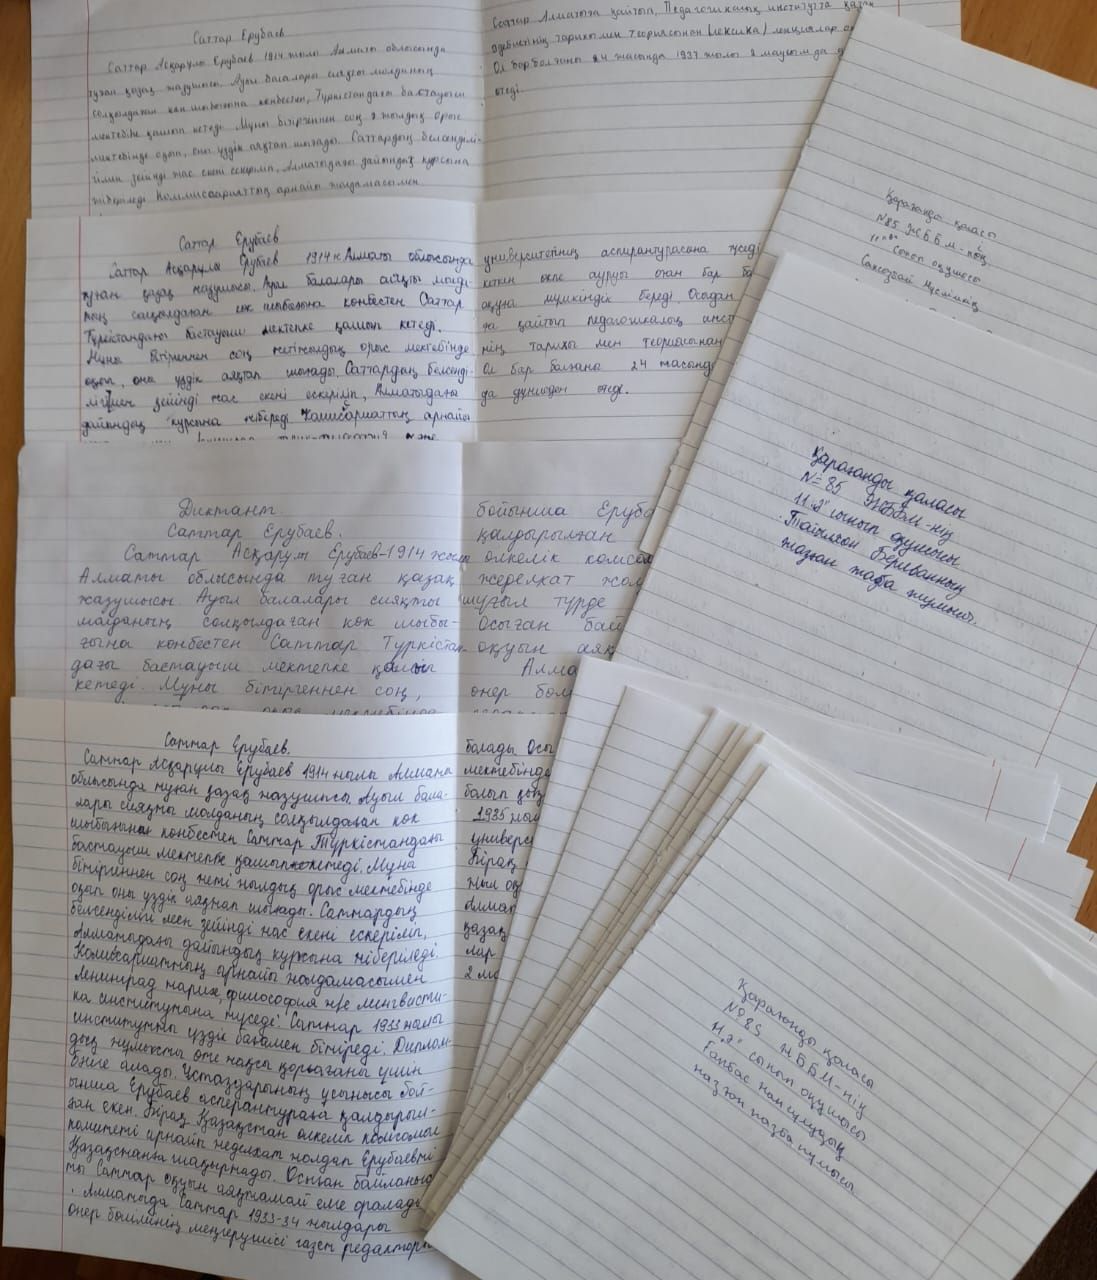 Саттар Ерубаев
Саттар Асқарұлы Ерубаев 1914 жылы Алматы облысында
туған қазақ жазушысы. Ауыл балалары сияқты молданың
солқылдаған көк шыбығына көнбестен, Түркістандағы бастауыш
мектебіне қашып кетеді. Мұны бітіргеннен соң 7 жылдық орыс
мектебінде оқып, оны үздік аяқтап шығады. Саттардың белсенділі-
гімен зейінді жас екені ескеріліп, Алматыдағы дайындық курсына
жіберіледі. Коммисариаттың арнайы жолдамасымен
Саттар Алматыға қайтып, Педагогикалық институтта қазақ
әдебиетінің тарихы мен теориясынан (лексика) лекциялар
Ол бар болғаны 24 жасында 1937 жылы 2 маусымда
өтеді.
Саттар Ерубаев
Саттар Асқарұлы Ерубаев 1914 ж Алматы облысында
туған қазақ жазушысы. Ауыл балалары сияқты молда-
ның солқылдаған көк шыбығына көнбестен Саттар
Түркістандағы бастауыш мектепке қашып кетеді.
Мұны бітіргеннен соң жетіжылдық орыс мектебінде
оқып, оны үздік аяқтап шығады. Саттардың белсенді-
лігімен зейінді жас екені ескеріліп, Алматыдағы
дайындық курсына жіберіледі. Комисариаттың арнайы
университетінің аспирантурасына түседі
кеткен өкпе ауруы оған бар
оқуға мүмкіндік береді. Осыдан
ға қайтып педагогикалық инст
нің тарихы мен теориясынан
Ол бар болғаны 24 жасынд
да дүниеден өтеді.
Диктант.
Саттар Ерубаев.
Саттар Асқарұлы Ерубаев-1914 жылы
Алматы облысында туған қазақ
жазушысы. Ауыл балалары сияқты
молданың солқылдаған көк шыбы-
ғына көнбестен Саттар Түркістан-
дағы бастауыш мектепке қашып
кетеді. Мұны бітіргеннен соң,
бойынша Еруба
қалдырылған
өлкелік комсом
жеделхат жол
шұғыл түрде
Осыған бай
оқуын аяқ
Алма
өнер бөлі
Саттар Ерубаев.
Саттар Асқарұлы Ерубаев 1914 жылы Алматы
облысында туған қазақ жазушысы. Ауыл бала-
лары сияқты молданың солқылдаған көк
шыбығына көнбестен Саттар Түркістандағы
бастауыш мектепке қашып кетеді. Мұны
бітіргеннен соң жеті жылдық орыс мектебінде
оқып оны үздік аяқтап шығады. Саттардың
белсенділігі мен зейінді жас екені ескеріліп,
Алматыдағы дайындық курсына жіберіледі.
Комисариаттың арнайы жолдамасымен
Ленинград тарих, философия және лингвисти-
ка институтына түседі. Саттар 1933 жылы
институтты үздік бағамен бітіреді. Диплом-
дық жұмысты өте жақсы қорғағаны үшін
бәйге алады. Ұстаздарының ұсынысы бой-
ынша Ерубаев аспирантураға қалдырыл-
ған екен. Бірақ Қазақстан өлкелік комсомол
комитеті арнайы жеделхат жолдап Ерубаевті
Қазақстанға шақыртады. Осыған байланыс-
ты Саттар оқуын аяқтамай елге оралады
Алматыда Саттар 1933-34 жылдары
өнер бөлімінің меңгерушісі газет редакторы
болады Осы
мектебінде
болып қы
1935 жы
универс
Бірақ
жыл оқ
Алмат
қазақ
лар
2 ма
Қарағанды қаласы
№85 ЖББМ-нің
оқушысы
Қарағанды қаласы
№85 ЖББМ-нің
11 "Ә" сынып оқушысы
жазған жазба жұмысы.
Қарағанды қаласы
№85 ЖББМ-нің
11 "Ә" сынып оқушысы
жазған жазба жұмысы